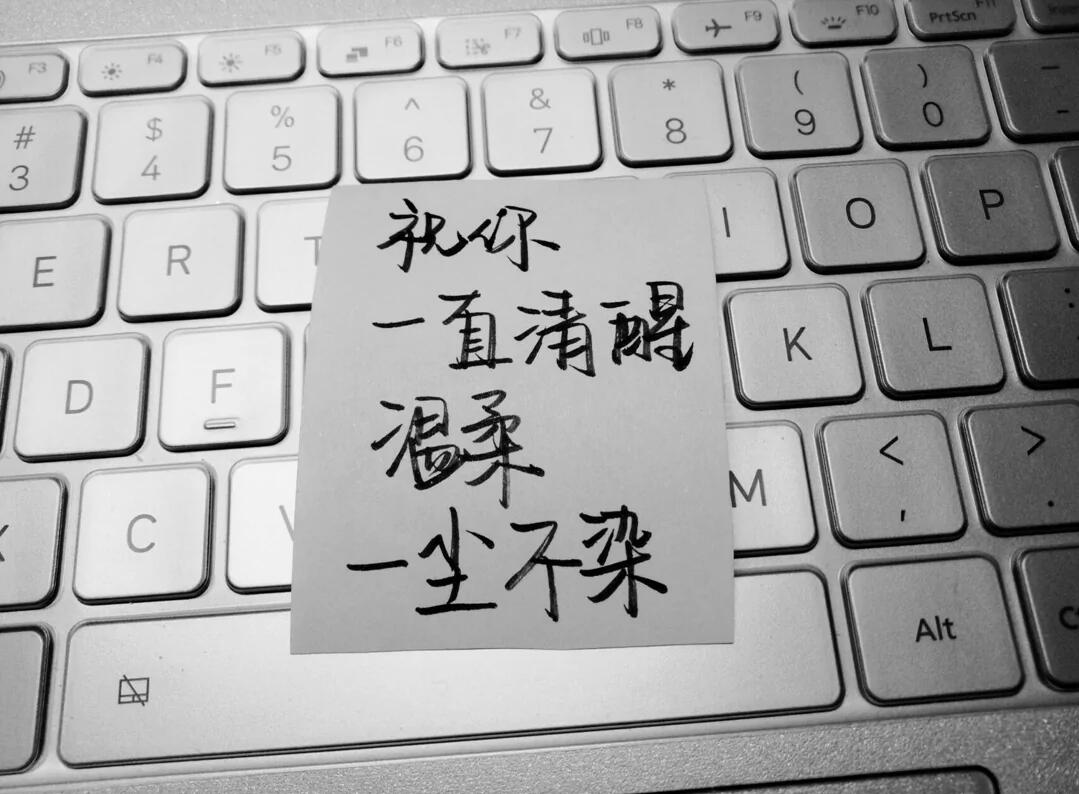 F3 F4 F5 F6 F7 F8 F9 F10 PrtScn F11
# $ % ^ & * ( ) _
3 4 5 6 7 8 9 0 -
E R I O P
D F K L
C M < >
, .
Alt
祝你
一直清醒
温柔
一尘不染